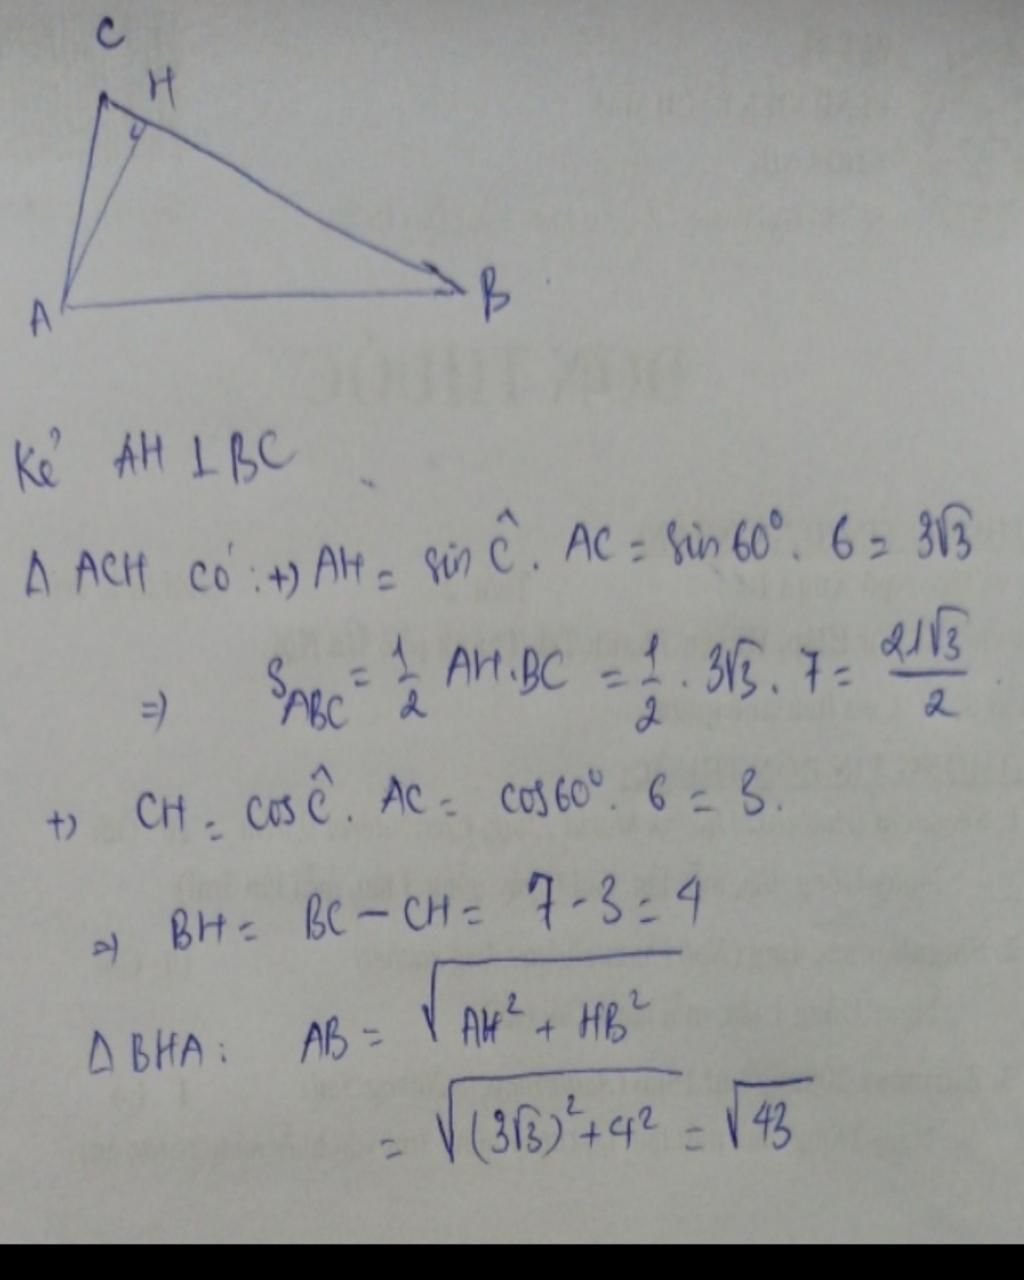 C
H
A
B
Kẻ AH ⊥ BC
Δ ACH có: +) AH = sin Ĉ. AC = sin 60°. 6 = 3√3
=) S_ABC = 1/2 AH.BC = 1/2 . 3√3 . 7 = 21√3/2
+) CH = cos Ĉ. AC = cos 60°. 6 = 3.
=) BH = BC - CH = 7 - 3 = 4
Δ BHA: AB = √(AH² + HB²)
= √((3√3)² + 4²) = √43